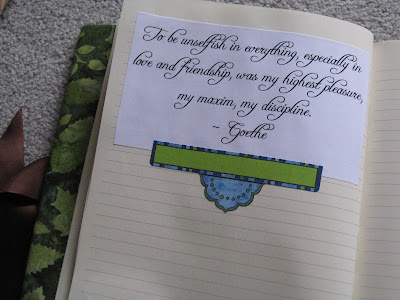 To be unselfish in everything, especially in
love and friendship, was my highest pleasure,
my maxim, my discipline.
~ Goethe